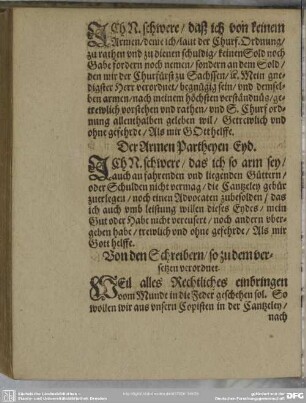 ICh N. schwere / daß ich von keinem
Armen / deme ich / laut der Churf. Ordnung /
zu rathen vnd zu dienen schuldig / keinen Sold noch
Gabe fordern noch nemen / sondern an dem Sold /
den mir der Churfürst zu Sachssen / ꝛc. Mein gne-
digster Herr verordnet / begnügig sein / vnd demsel-
ben armen / nach meinem höchsten verständnüß / ge-
trewlich vorstehen vnd rathen / vnd S. Churf. ord-
nung allenthalben geleben wil / Getrewlich vnd
ohne gefehrde / Als mir GOtt helffe.
Der Armen Partheyen Eyd.
ICh N. schwere / das ich so arm sey /
auch an fahrenden vnd liegenden Güttern /
oder Schulden nicht vermag / die Cantzeley gebür
zuerlegen / noch einen Advocaten zubesolden / das
ich auch vmb leistung willen dieses Eydes / mein
Gut oder Habe nicht vereusert / noch andern vber-
geben habe / trewlich vnd ohne gefehrde / Als mir
Gott helffe.
Von den Schreibern / so zu dem ver-
setzen verordnet
WEil alles Rechtliches einbringen
vom Munde in die Feder geschehen sol. So
wollen wir aus vnsern Copisten in der Cantzeley /
nach